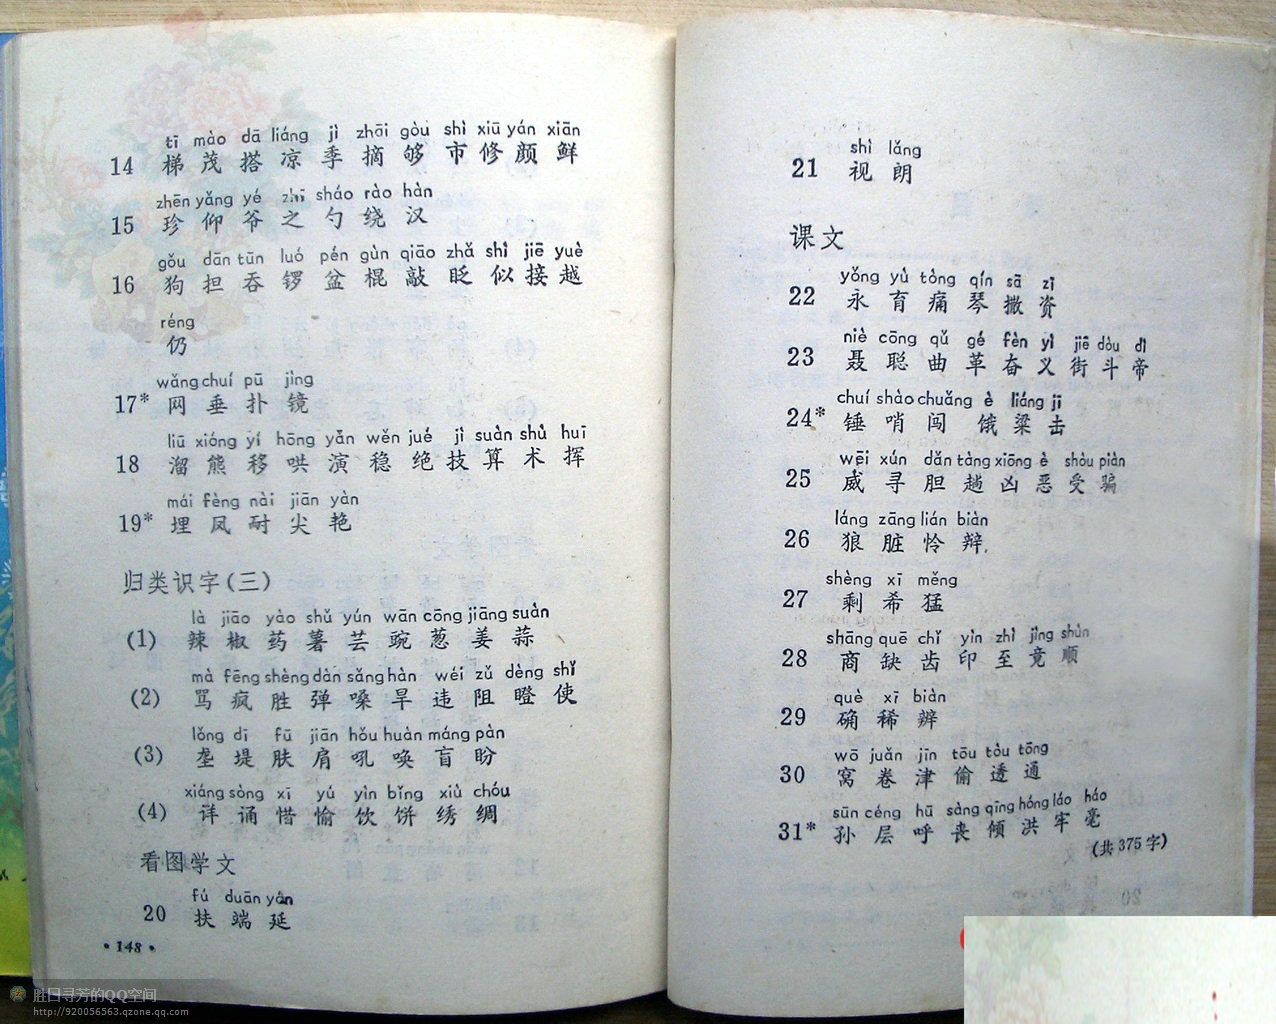 tī mào dā liáng jì zhāi gòu shì xiū yán xiān
14 梯 茂 搭 凉 季 摘 够 市 修 颜 鲜
zhēn yǎng yé zhī sháo rào hàn
15 珍 仰 爷 之 勺 绕 汉
gǒu dān tūn luó pén gùn qiāo zhǎ shì jiē yuè
16 狗 担 吞 锣 盆 棍 敲 眨 似 接 越
réng
仍
wǎng chuí pū jìng
17* 网 垂 扑 镜
liū xióng yí hōng yǎn wěn jué jì suàn shù huī
18 溜 熊 移 哄 演 稳 绝 技 算 术 挥
mái fèng nài jiān yàn
19* 埋 凤 耐 尖 艳
归类识字(三)
là jiāo yào shǔ yún wān cōng jiāng suàn
(1) 辣 椒 药 薯 芸 豌 葱 姜 蒜
mà fēng shèng dàn sǎng hàn wéi zǔ dèng shǐ
(2) 骂 疯 胜 弹 嗓 旱 违 阻 瞪 使
lǒng dī fū jiān hǒu huàn máng pàn
(3) 垄 堤 肤 肩 吼 唤 盲 盼
xiáng sòng xī yú yìn bǐng xiù chóu
(4) 详 诵 惜 愉 饮 饼 绣 绸
看图学文
fú duān yán
20 扶 端 延
•148•
shì lǎng
21 视 朗
课文
yǒng yù tòng qín sā zī
22 永 育 痛 琴 撒 资
niè cōng qǔ gé fèn yì jiē dòu dì
23 聂 聪 曲 革 奋 义 街 斗 帝
chuí shào chuǎng è liáng jī
24* 锤 哨 闯 饿 粱 击
wēi xún dǎn tàng xiōng è shòu piàn
25 威 寻 胆 趟 凶 恶 受 骗
láng zāng lián biàn
26 狼 脏 怜 辩
shèng xī měng
27 剩 希 猛
shāng quē chǐ yìn zhì jìng shùn
28 商 缺 齿 印 至 竟 顺
què xī biàn
29 确 稀 辨
wō juǎn jīn tōu tòu tōng
30 窝 卷 津 偷 透 通
sūn céng hū sàng qīng hóng láo háo
31* 孙 层 呼 丧 倾 洪 牢 毫
(共375字)
胜日寻芳的QQ空间
http://920056563.qzone.qq.com